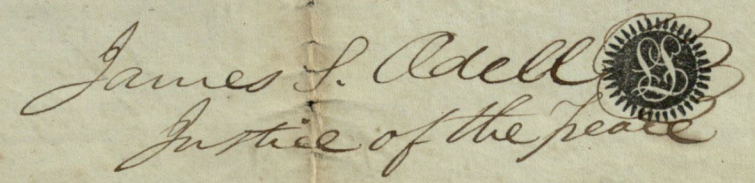 James S. Odell LS
Justice of the peace